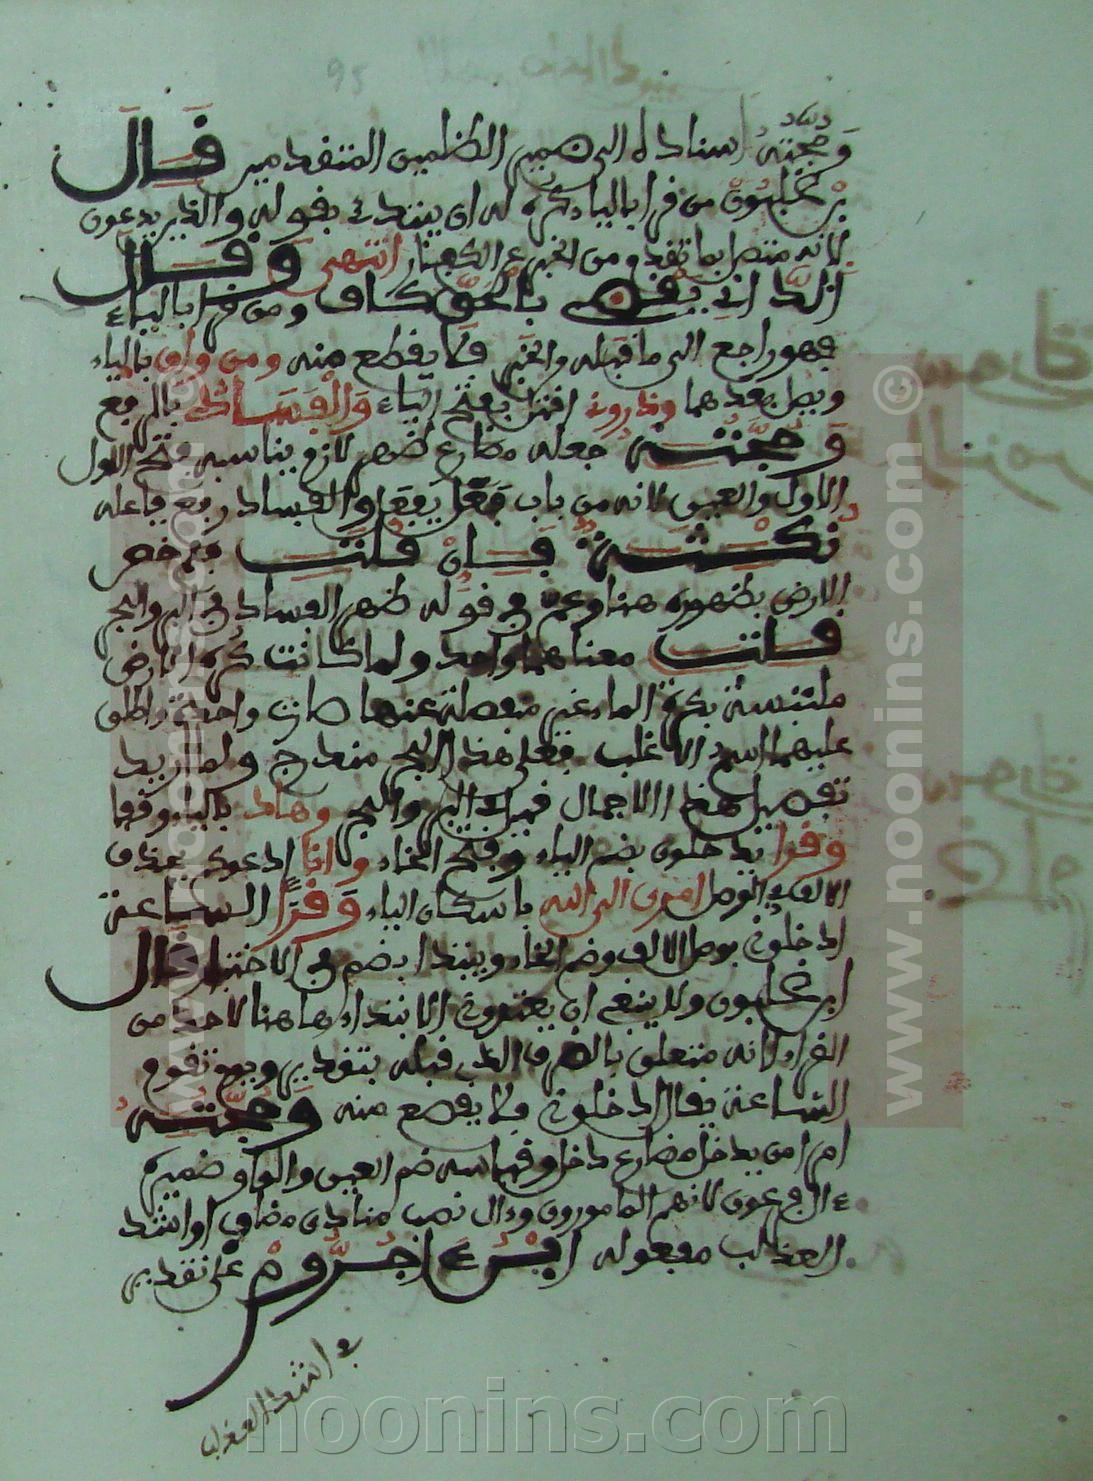 وحجته اسناده الى ضمير الظلمين المتقدمين قال
بن غلبون من قرا بالياء كره له ان يبتدئ بقوله والذين يدعون
لانه متصل بما تقدم من الخبر عن الكفار انتهى وقال
الداني يقف بالحق كاف ومن قرا بالياء
فهو راجع الى ما قبله والخبر فلا يقطع منه ومن واق بالياء
وبصل بعدهما افتل بفتح الياء والفساد بالرفع
وحجته جعله مضارع ظهر لازم يناسبه فتح
الاول والعين لانه من باب فعل يفعل والفساد رفع فاعله
نكتة فان قلت فلم خص
الارض بظهوره هنا وعم في قوله ظهر الفساد في البر والبحر
قلت معناهما واحد ولما كانت كرة الارض
ملتبسة بكرة الماء غير منفصلة عنها صارت واحدة واطلق
عليهما اسم الاغلب فعلى هذا البحر مندرج ولما اريد
تفصيل هذا الاجمال قيل في البر والبحر وهاد بالياء وقفا
وقرا يدخلون بضم الياء وفتح الخاء وانا ادعوكم بحذف
الالف في الوصل امري الى الله باسكان الياء وقرا الساعة
ادخلوا بوصل الالف وضم الخاء ويبتدا بضم في الاختبار قال
ابن غلبون ولا ينبغي ان يعتمدوا الابتداء هاهنا لاحد من
القراء لانه متعلق بالظرف الذي قبله بتقدير ويوم تقوم
الساعة يقال ادخلوا فلا يقطع منه وحجته
امر من يدخل مضارع دخل وقياسه ضم العين والواو ضمير
ال فرعون لانهم المامورون وءال نصب منادى مضاف او اشد
العذاب مفعوله ابن ءاجروم على تقدير
في اشد العذاب
www.noonins.com ©
www.noonins.com ©
noonins.com
95